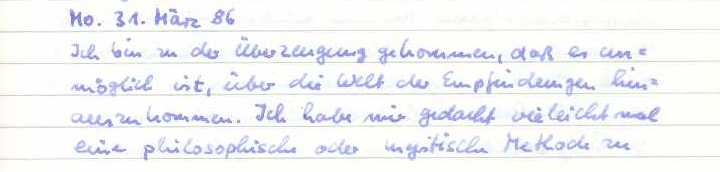 Mo. 31. März 86
Ich bin zu der Überzeugung gekommen, daß es un=
möglich ist, über die Welt der Empfindungen hin=
auszukommen. Ich habe mir gedacht vieleicht mal
eine philosophische oder mystische Methode zu